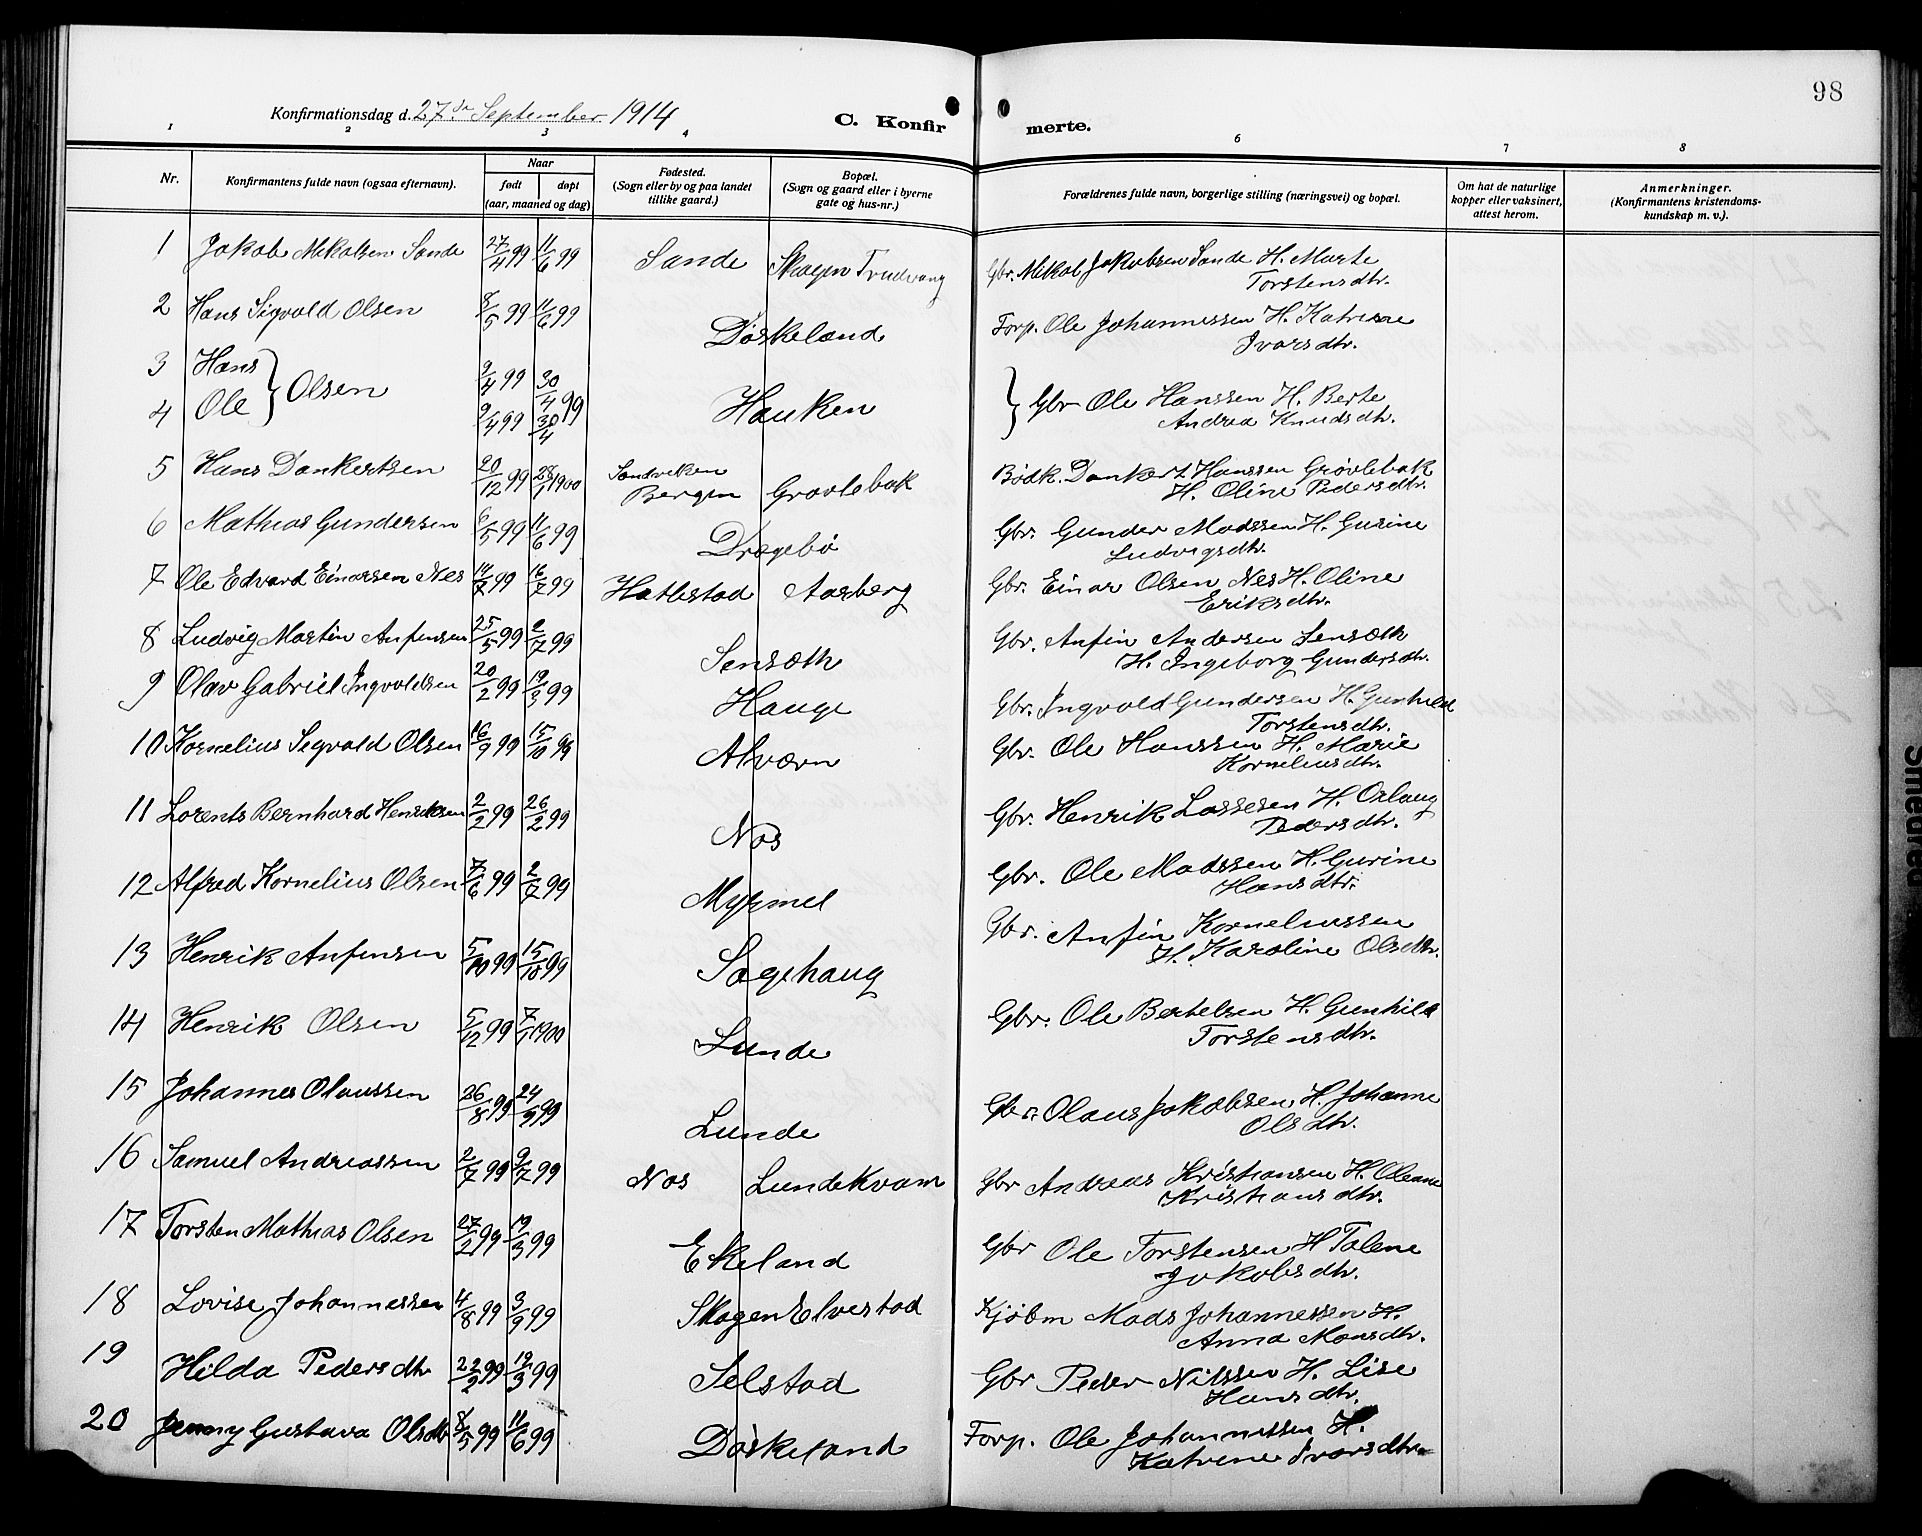 98
Konfirmationsdag d. 27de September 1914
C. Konfirmerte.
1 2 3 4 6 7 8
Nr. Konfirmantens fulde navn (ogsaa efternavn). Naar født døpt (aar, maaned og dag) Fødested. (Sogn eller by og paa landet tillike gaard.) Bopæl. (Sogn og gaard eller i byerne gate og hus-nr.) Forældrenes fulde navn, borgerlige stilling (næringsvei) og bopæl. Om hat de naturlige kopper eller vaksinert, attest herom. Anmerkninger. (Konfirmantens kristendoms-kundskap m. v.).
1 Jakob Mikalsen Sande 27/4 99 11/6 99 Sande Skagen Trudvang Gbr. Mikal Jakobsen Sande H. Marte
Torstensdtr.
2 Hans Sigvald Olsen 8/5 99 11/6 99 Døskeland Forp. Ole Johannessen H. Katrine
Ivarsdtr.
3 Hans } Olsen 9/4 99 30/4 99 Hauken } Gbr Ole Hanssen H. Berte
4 Ole 9/4 99 30/4 Andrea Knudsdtr.
5 Hans Dankertsen 20/12 99 28/1 1900 Sandviken Bergen Grøvlebak Bødk. Dankert Hanssen Grøvlebak
H. Oline Pedersdtr.
6 Mathias Gundersen 6/5 99 11/6 99 Drægebø Gbr. Gunder Madssen H. Gurine
Ludvigsdtr.
7 Ole Edvard Einarsen Nes 14/7 99 16/7 99 Hatlestad Aarberg Gbr. Einar Olsen Nes H. Oline
Eriksdtr.
8 Ludvig Martin Anfinsen 25/5 99 2/7 99 Sensæth Gbr. Anfin Andersen Sensæth
H. Ingeborg Gundersdtr.
9 Olav Gabriel Ingvaldsen 20/2 99 19/3 99 Hauge Gbr. Ingvald Gundersen H. Gunhild
Torstensdtr.
10 Kornelius Sigvald Olsen 16/9 99 15/10 99 Alværn Gbr. Ole Hanssen H. Marie
Korneliusdtr.
11 Lorents Bernhard Henriksen 2/2 99 26/2 99 Nos Gbr. Henrik Lassesen H. Oslaug
Pedersdtr.
12 Alfred Kornelius Olsen 7/6 99 2/7 99 Myrmel Gbr. Ole Madssen H. Gurine
Hansdtr.
13 Henrik Anfinsen 5/10 99 15/10 99 Sagehaug Gbr. Anfin Korneliussen
H. Karoline Olsdtr.
14 Henrik Olsen 5/12 99 7/1 1900 Lunde Gbr. Ole Bertelsen H. Gunhild
Torstensdtr.
15 Johannes Olaussen 26/8 99 24/9 99 Lunde Gbr. Olaus Jakobsen H. Johanne
Olsdtr.
16 Samuel Andreassen 2/7 99 9/7 99 Nos Lundekvam Gbr Andreas Kristiansen H. Oleane
Kristiansdtr.
17 Torsten Mathias Olsen 27/2 99 19/3 99 Ekeland Gbr Ole Torstensen H Talene
Jakobsdtr.
18 Lovise Johannessen 4/8 99 3/9 99 Skagen Elvestad Kjøbm Mads Johannessen H.
Anna Monsdtr.
19 Hilda Pedersdtr 22/2 99 19/3 99 Selstad Gbr Peder Nilssen H. Lise
Hansdtr.
20 Jenny Gustava Olsdtr 8/5 99 11/6 99 Døskeland Forp. Ole Johannessen H.
Katrine Ivarsdtr.